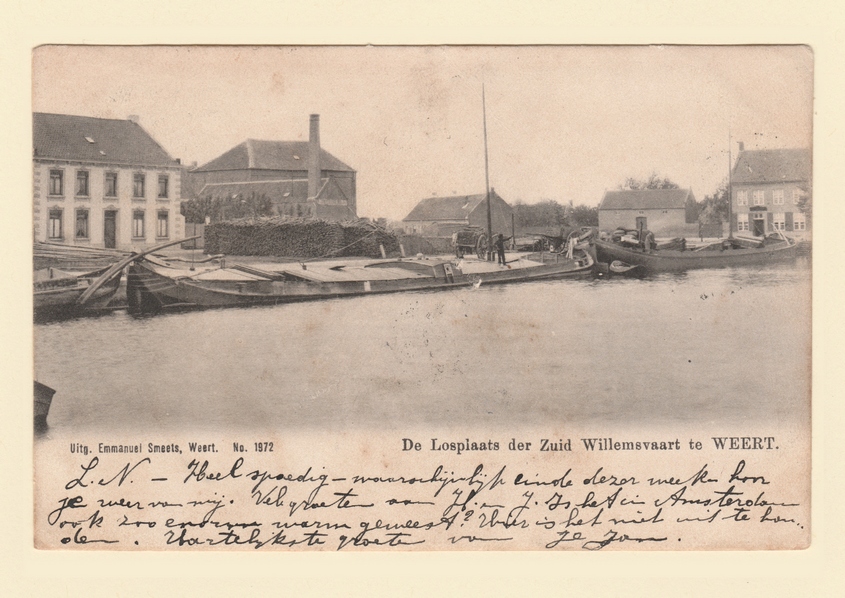 Uitg. Emmanuel Smeets, Weert. No. 1972
De Losplaats der Zuid Willemsvaart te WEERT.
L. N. – Heel spoedig – waarschijnlijk einde dezer week hoor
je weer van mij. Vele groeten aan H. en J. Is het in Amsterdam
ook zoo enorm warm geweest? Hier is het niet uit te hou-
den. Hartelijkste groeten van Je Jan.